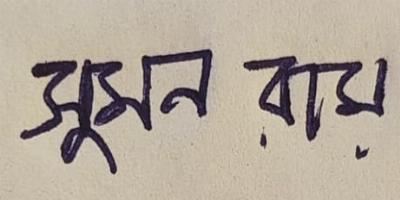 সুমন রায়